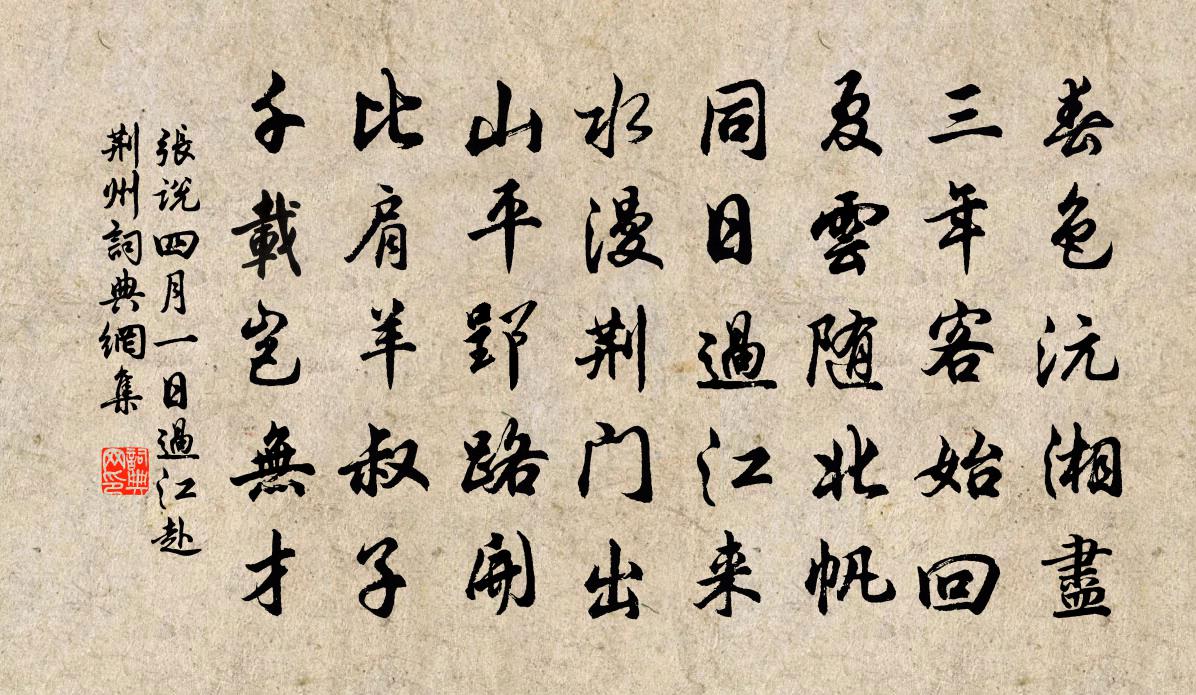 春色沅湘盡
三年客始回
夏雲随北帆
同日過江来
水漫荆门出
山平郢路開
比肩羊叔子
千載岂無才
張説四月一日過江赴
荆州詞典網集
詞典
网印